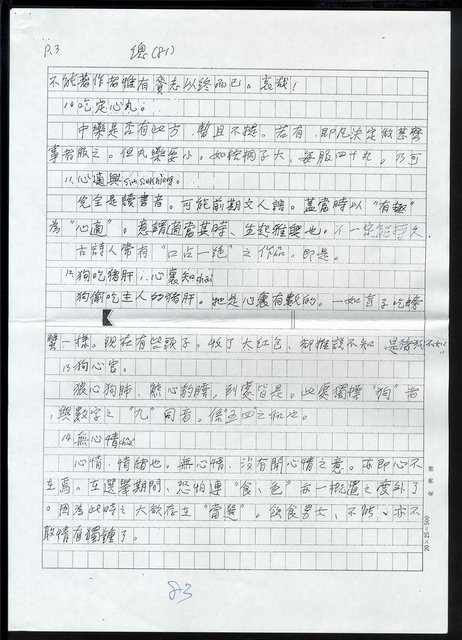 P.3 總(81)
不能著作者惟有賫志以終而已。哀哉!
10吃定心丸。
中藥是否有此方,暫且不提。若有,即凡決定做甚麼
事者服之。但丸藥要小。如梧桐子大,每服四十丸,乃可
11心適興
完全是讀書音。可能前期文人語。蓋當時以“有趣”
為“心適”。意謂適當其時、生起雅興也。不一定能持久
古詩人常有“口占一絕”之作品,即是。
12狗吃豬肝,心裏知
狗偷吃主人的豬肝。牠是心裏有數的。一如盲子吃螃
蟹一樣。現在有些頭子。收了大紅包、却推說不知。是豬狗不如。
13狗心官。
狼心狗肺、熊心豹膽,則要皆是。此要獨標“狗”者
,與數字之“九”同音。係五四之和也。
14無心情
心情,情緒也。無心情,沒有開心情之意。亦即心不
在焉。在選舉期間、恐怕連“食、色”亦一概置之度外了
。因為此時之大欲存在“當選”。飲食男女、不能、亦不
敢情有獨鍾了。
20×25=500
83